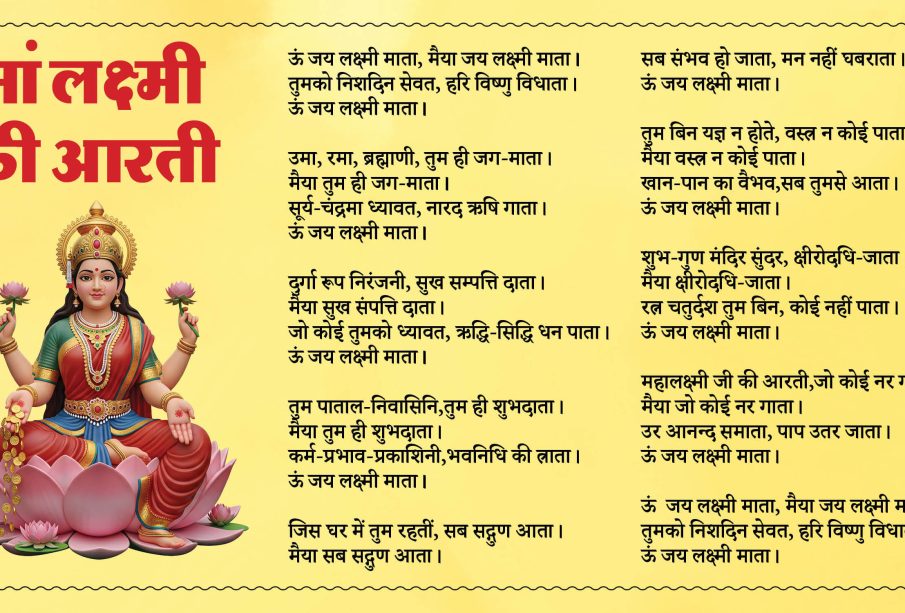 मां लक्ष्मी
की आरती
ऊं जय लक्ष्मी माता, मैया जय लक्ष्मी माता।
तुमको निशदिन सेवत, हरि विष्णु विधाता।
ऊं जय लक्ष्मी माता।
उमा, रमा, ब्रह्माणी, तुम ही जग-माता।
मैया तुम ही जग-माता।
सूर्य-चंद्रमा ध्यावत, नारद ऋषि गाता।
ऊं जय लक्ष्मी माता।
दुर्गा रूप निरंजनी, सुख सम्पत्ति दाता।
मैया सुख संपत्ति दाता।
जो कोई तुमको ध्यावत, ऋद्धि-सिद्धि धन पाता।
ऊं जय लक्ष्मी माता।
तुम पाताल-निवासिनि,तुम ही शुभदाता।
मैया तुम ही शुभदाता।
कर्म-प्रभाव-प्रकाशिनी,भवनिधि की त्राता।
ऊं जय लक्ष्मी माता।
जिस घर में तुम रहतीं, सब सद्गुण आता।
मैया सब सद्गुण आता।
सब संभव हो जाता, मन नहीं घबराता।
ऊं जय लक्ष्मी माता।
तुम बिन यज्ञ न होते, वस्त्र न कोई पाता
मैया वस्त्र न कोई पाता।
खान-पान का वैभव,सब तुमसे आता।
ऊं जय लक्ष्मी माता।
शुभ-गुण मंदिर सुंदर, क्षीरोदधि-जाता
मैया क्षीरोदधि-जाता।
रत्न चतुर्दश तुम बिन, कोई नहीं पाता।
ऊं जय लक्ष्मी माता।
महालक्ष्मी जी की आरती,जो कोई नर
मैया जो कोई नर गाता।
उर आनन्द समाता, पाप उतर जाता।
ऊं जय लक्ष्मी माता।
ऊं जय लक्ष्मी माता, मैया जय लक्ष्मी
तुमको निशदिन सेवत, हरि विष्णु
ऊं जय लक्ष्मी माता।